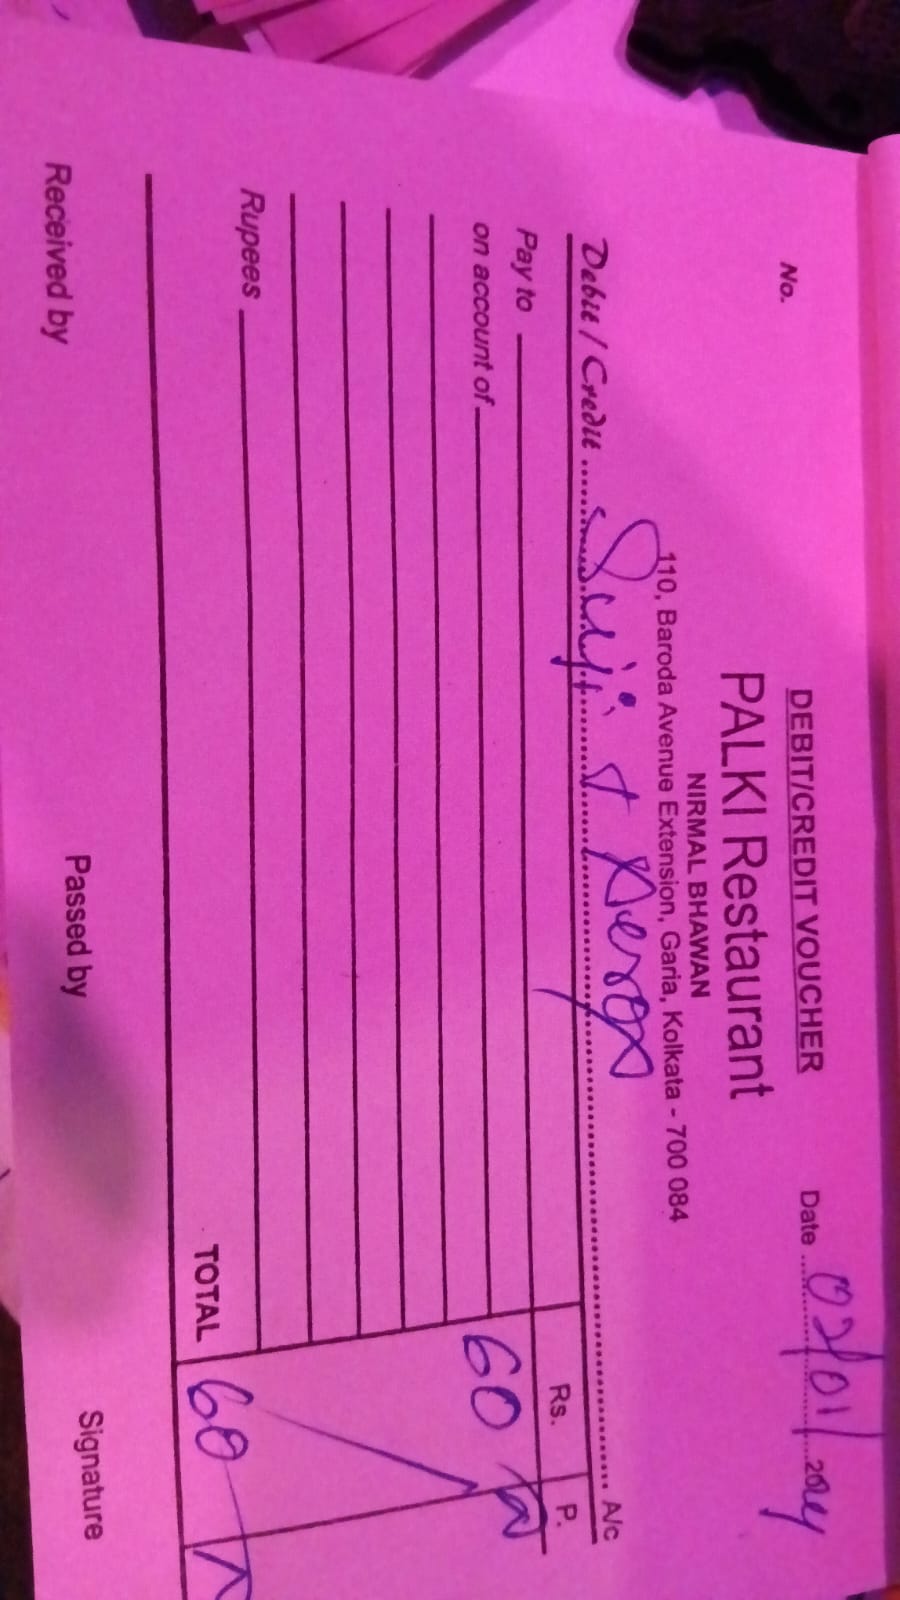 DEBIT/CREDIT VOUCHER
No. Date 02/01/2024
PALKI Restaurant
NIRMAL BHAWAN
110, Baroda Avenue Extension, Garia, Kolkata - 700 084
Debit / Credit Suji & Xerox A/c
Rs. P.
Pay to
on account of 60
Rupees
TOTAL 60
Received by Passed by Signature